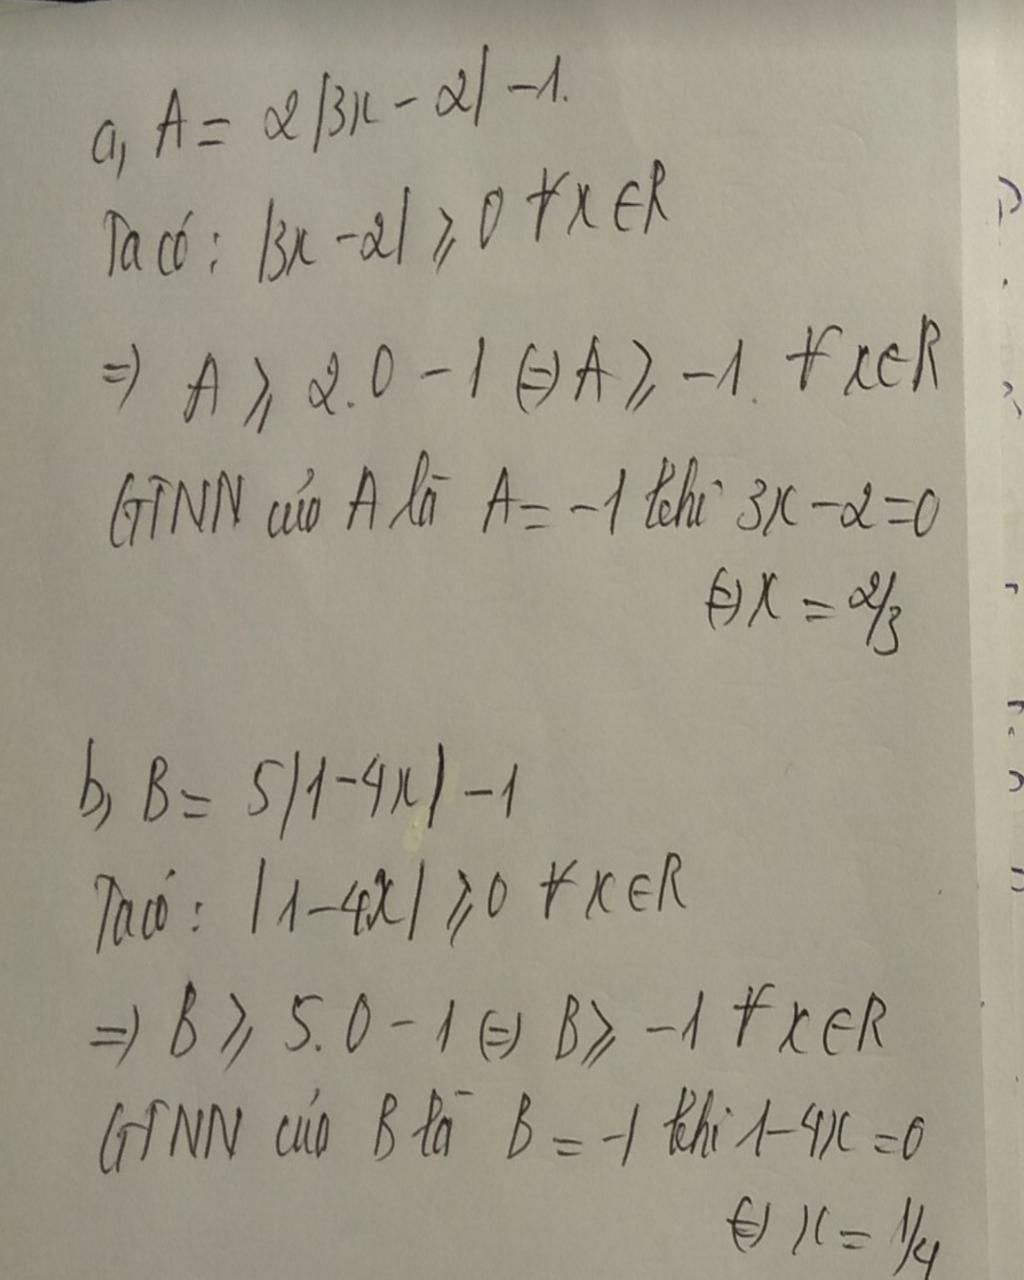 a, A = 2|3x - 2| - 1.
Ta có: |3x - 2| ⩾ 0 ∀x ∈ R
=> A ⩾ 2.0 - 1 <=> A ⩾ -1. ∀x ∈ R
GTNN của A là A = -1 khi 3x - 2 = 0
<=> x = 2/3
b, B = 5|1 - 4x| - 1
Ta có: |1 - 4x| ⩾ 0 ∀x ∈ R
=> B ⩾ 5.0 - 1 <=> B ⩾ -1 ∀x ∈ R
GTNN của B là B = -1 khi 1 - 4x = 0
<=> x = 1/4